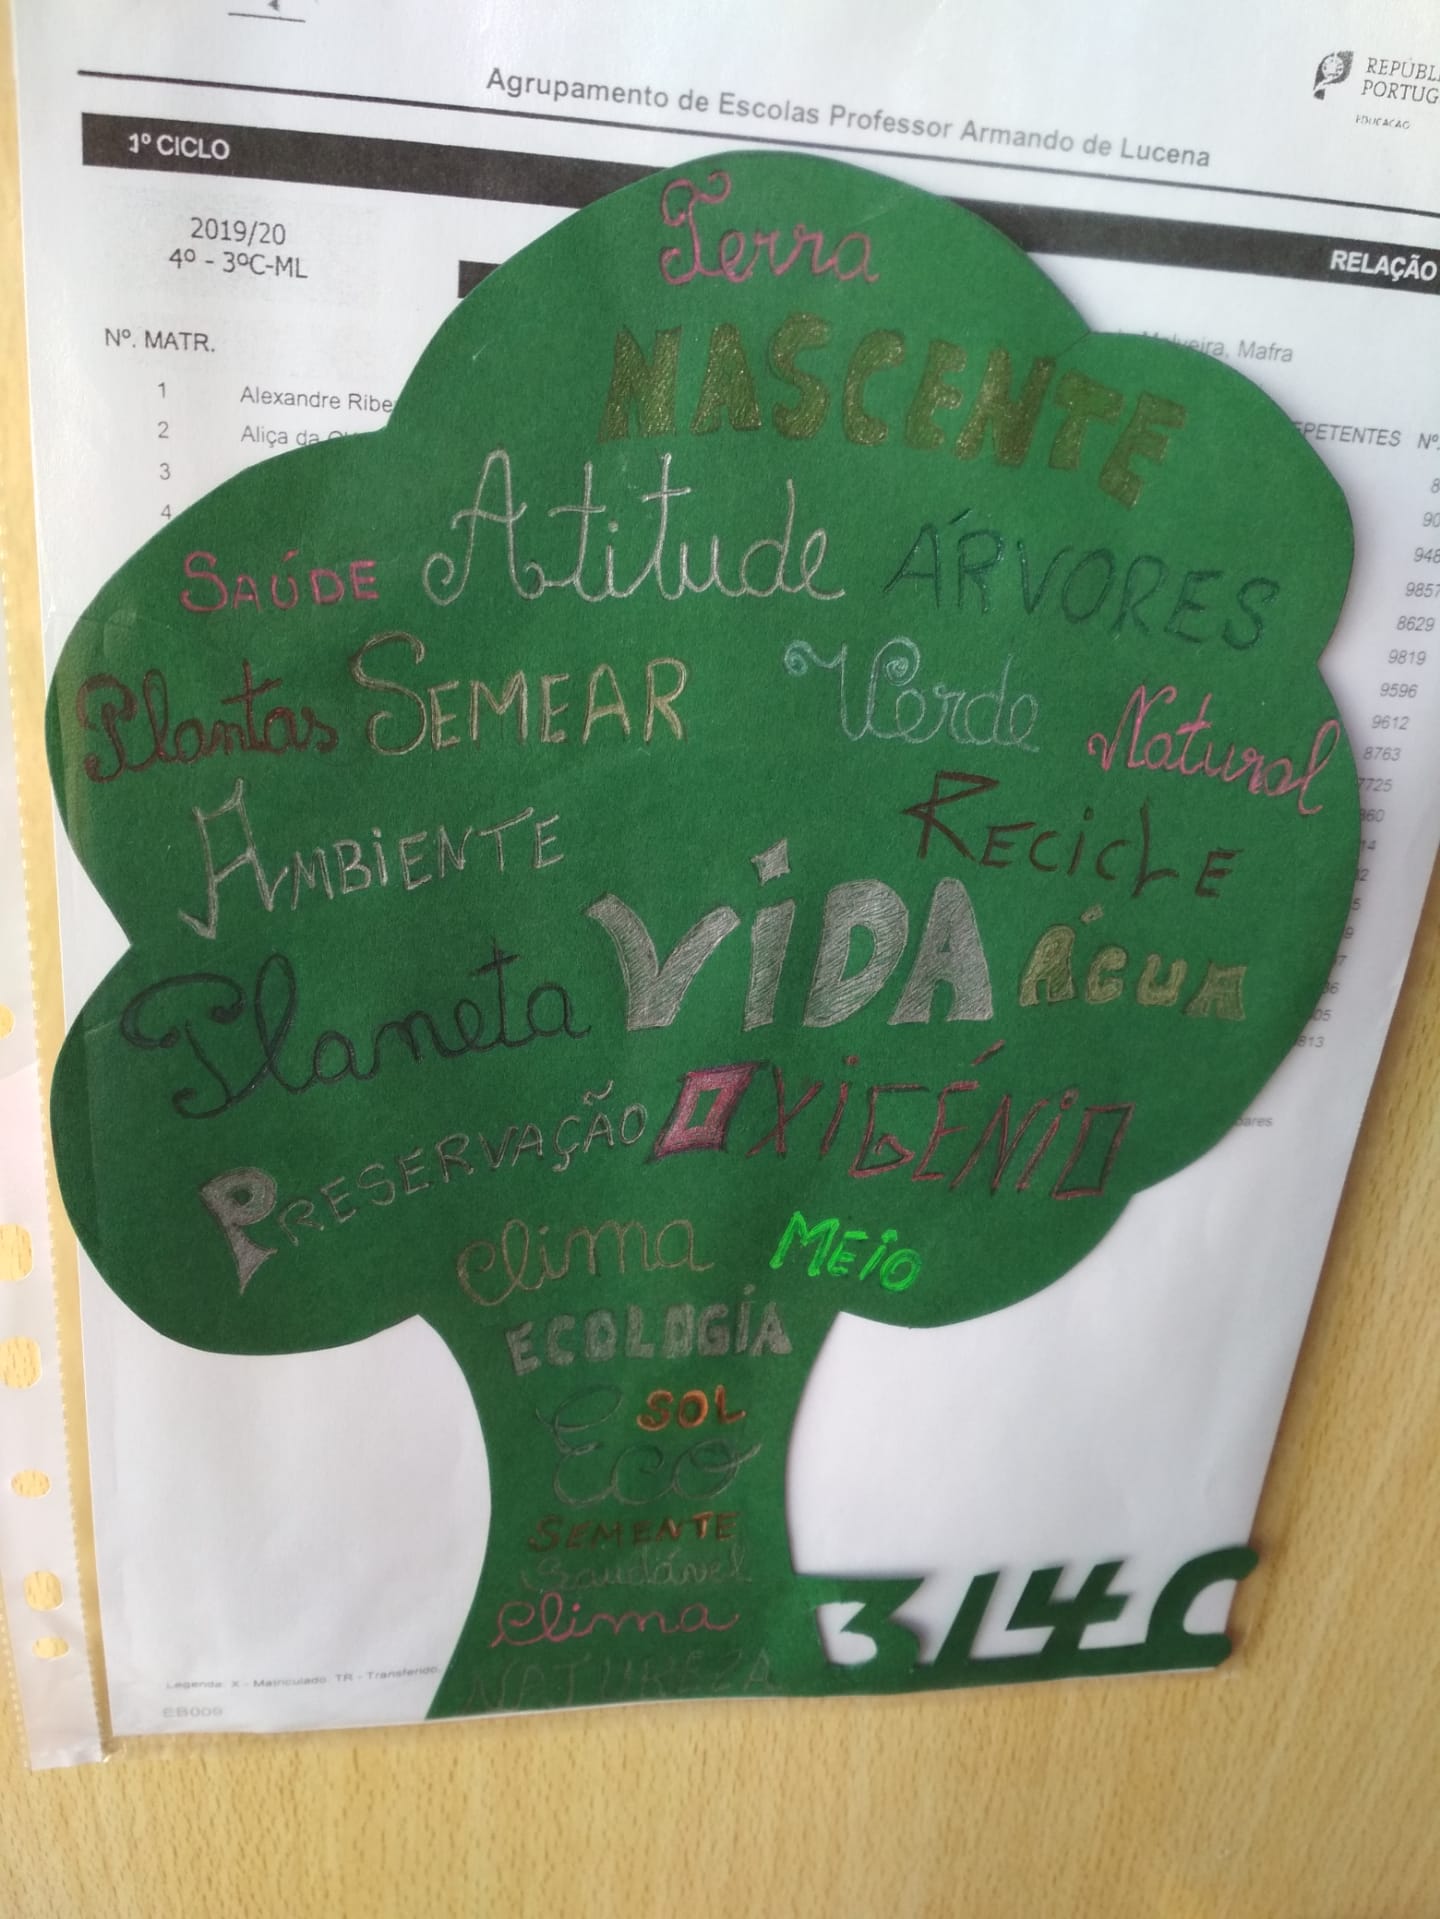 Agrupamento de Escolas Professor Armando de Lucena
REPÚBLI
PORTUG
EDUCAÇÃO
1º CICLO
RELAÇÃO
2019/20
4º - 3ºC-ML
Nº. MATR.
Malveira, Mafra
EPETENTES Nº.
1 Alexandre Ribe
2 Aliça da
3
4
8
90
948
9857
8629
9819
9596
9612
8763
7725
860
14
813
Terra
NASCENTE
SAÚDE Atitude ÁRVORES
Plantas SEMEAR Verde Natural
AMBIENTE RECICLE
Planeta VIDA ÁGUA
PRESERVAÇÃO OXIGÉNIO
Clima MEIO
ECOLOGÍA
SOL
ECO
SEMENTE
Saudável
Clima
NATUREZA
3/4C
Legenda: X - Matriculado. TR - Transferido.
EB009